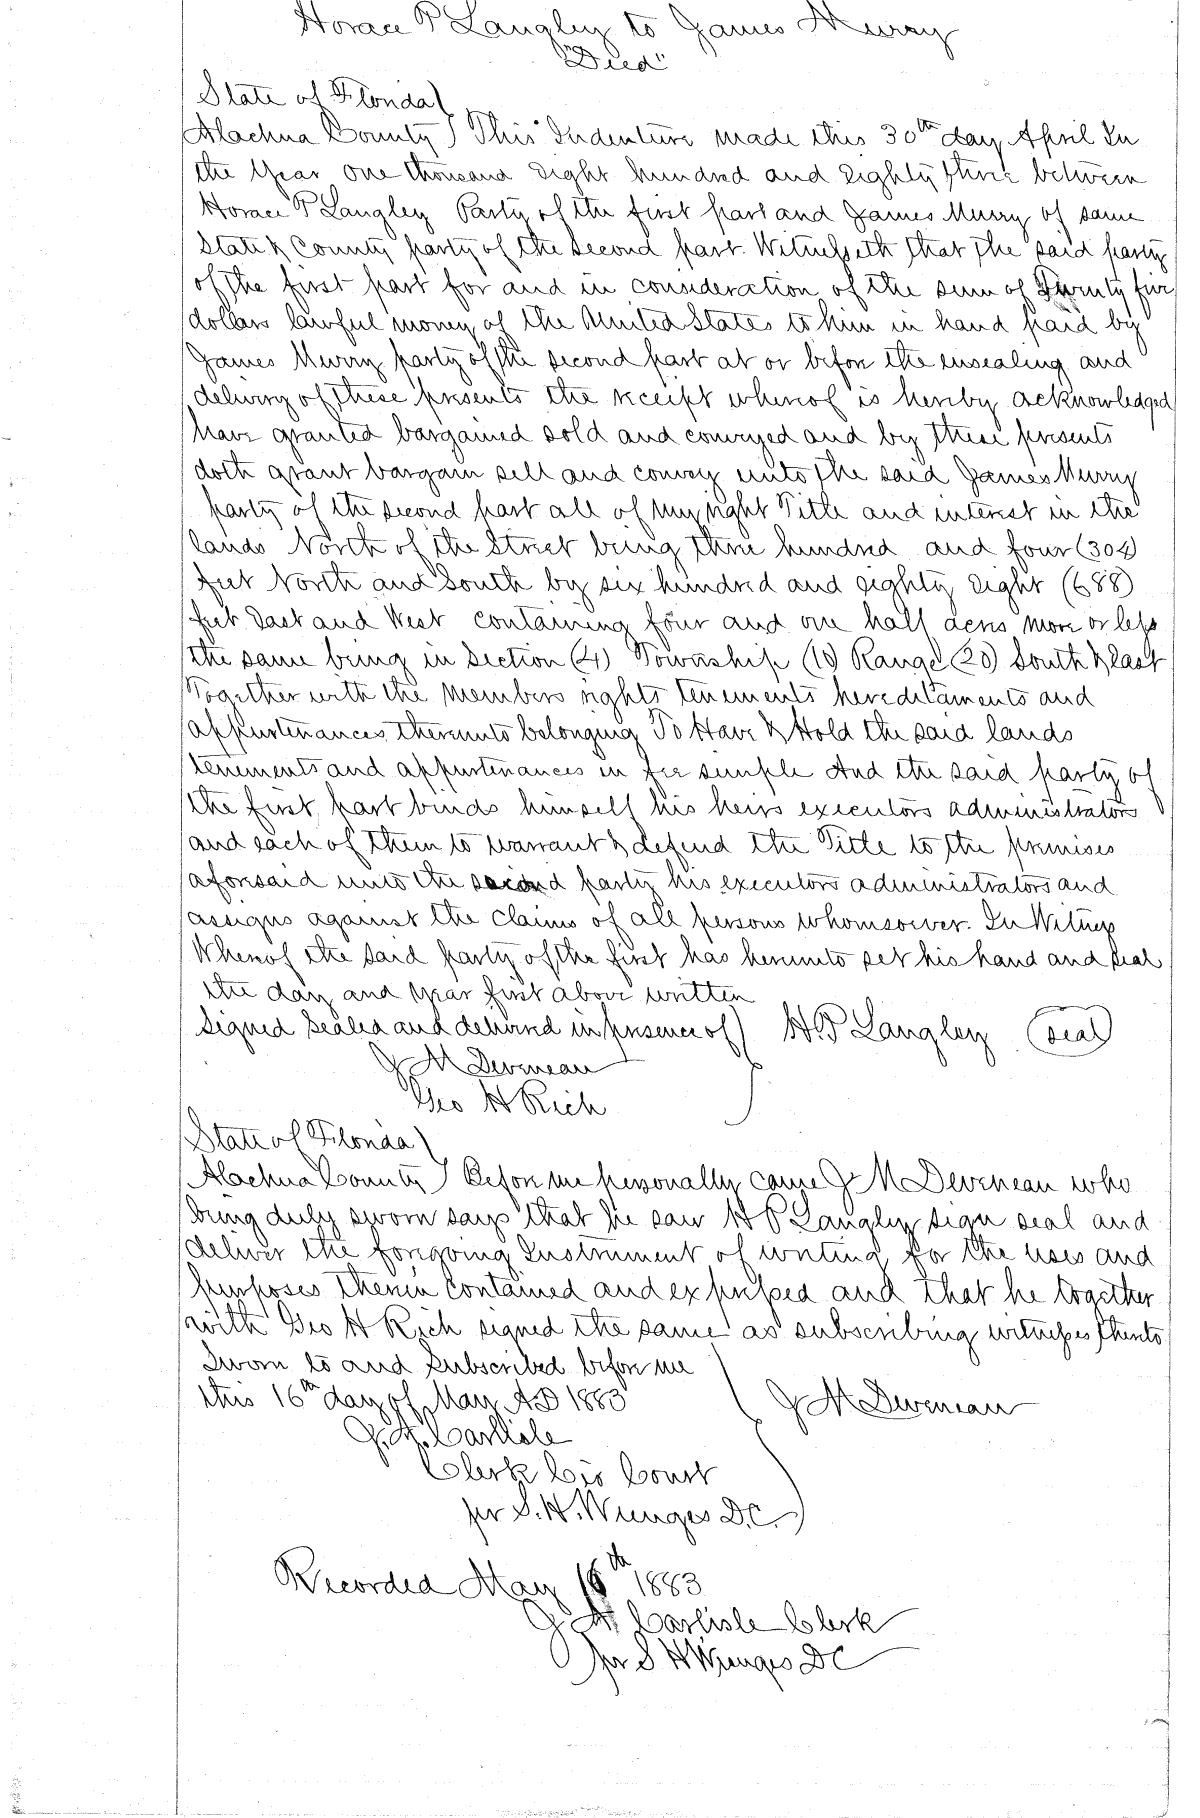 Horace P Langley to James Murry
"Deed"
State of Florida)
Alachua County) This Indenture made this 30th day April In
the Year one thousand Eight hundred and Eighty three between
Horace P Langley Party of the first part and James Murry of same
State & County party of the second part. Witnesseth that the said party
of the first part for and in consideration of the sum of Twenty five
dollars lawful money of the United States to him in hand paid by
James Murry party of the second part at or before the ensealing and
delivery of these presents the receipt whereof is hereby acknowledged
have granted bargained sold and conveyed and by these presents
doth grant bargain sell and convey unto the said James Murry
party of the second part all of my right Title and interest in the
lands North of the Street being three hundred and four (304)
feet North and South by six hundred and eighty eight (688)
feet East and West containing four and one half acres more or less
the same being in Section (4) Township (10) Range (20) South & East
Together with the members rights tenements hereditaments and
appurtenances thereunto belonging To Have & Hold the said lands
tenements and appurtenances in fee simple And the said party of
the first part binds himself his heirs executors administrators
and each of them to warrant & defend the Title to the premises
aforesaid unto the second party his executors administrators and
assigns against the claims of all persons whomsoever. In Witness
Whereof the said party of the first has hereunto set his hand and seal
the day and year first above written
Signed Sealed and delivered in presence of) H. P Langley (seal)
J M Deveneau
Geo H Rich
State of Florida)
Alachua County) Before me personally came J M Deveneau who
being duly sworn says that he saw H P Langley sign seal and
deliver the foregoing Instrument of writing for the uses and
purposes therein contained and expressed and that he together
with Geo H Rich signed the same as subscribing witnesses thereto
Sworn to and Subscribed before me
this 16th day of May AD 1883 J M Deveneau
J. A. Carlisle
Clerk Cir Court
per S. H. Wienges D.C.
Recorded May 16th 1883
J A Carlisle Clerk
per S H Wienges DC